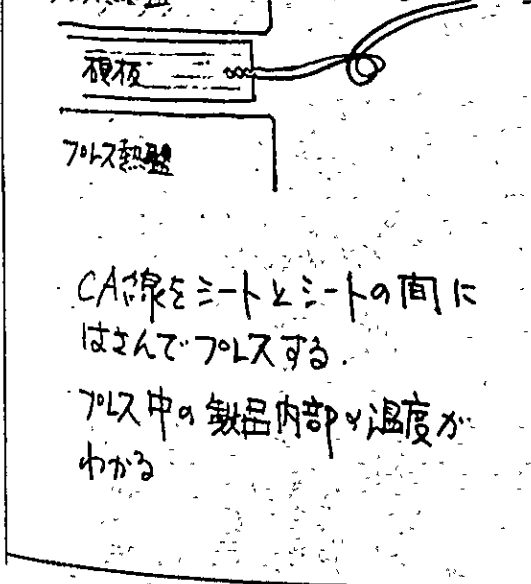 硬板
プレス熱盤
CA線をシートとシートの間に
はさんでプレスする.
プレス中の製品内部の温度が
わかる